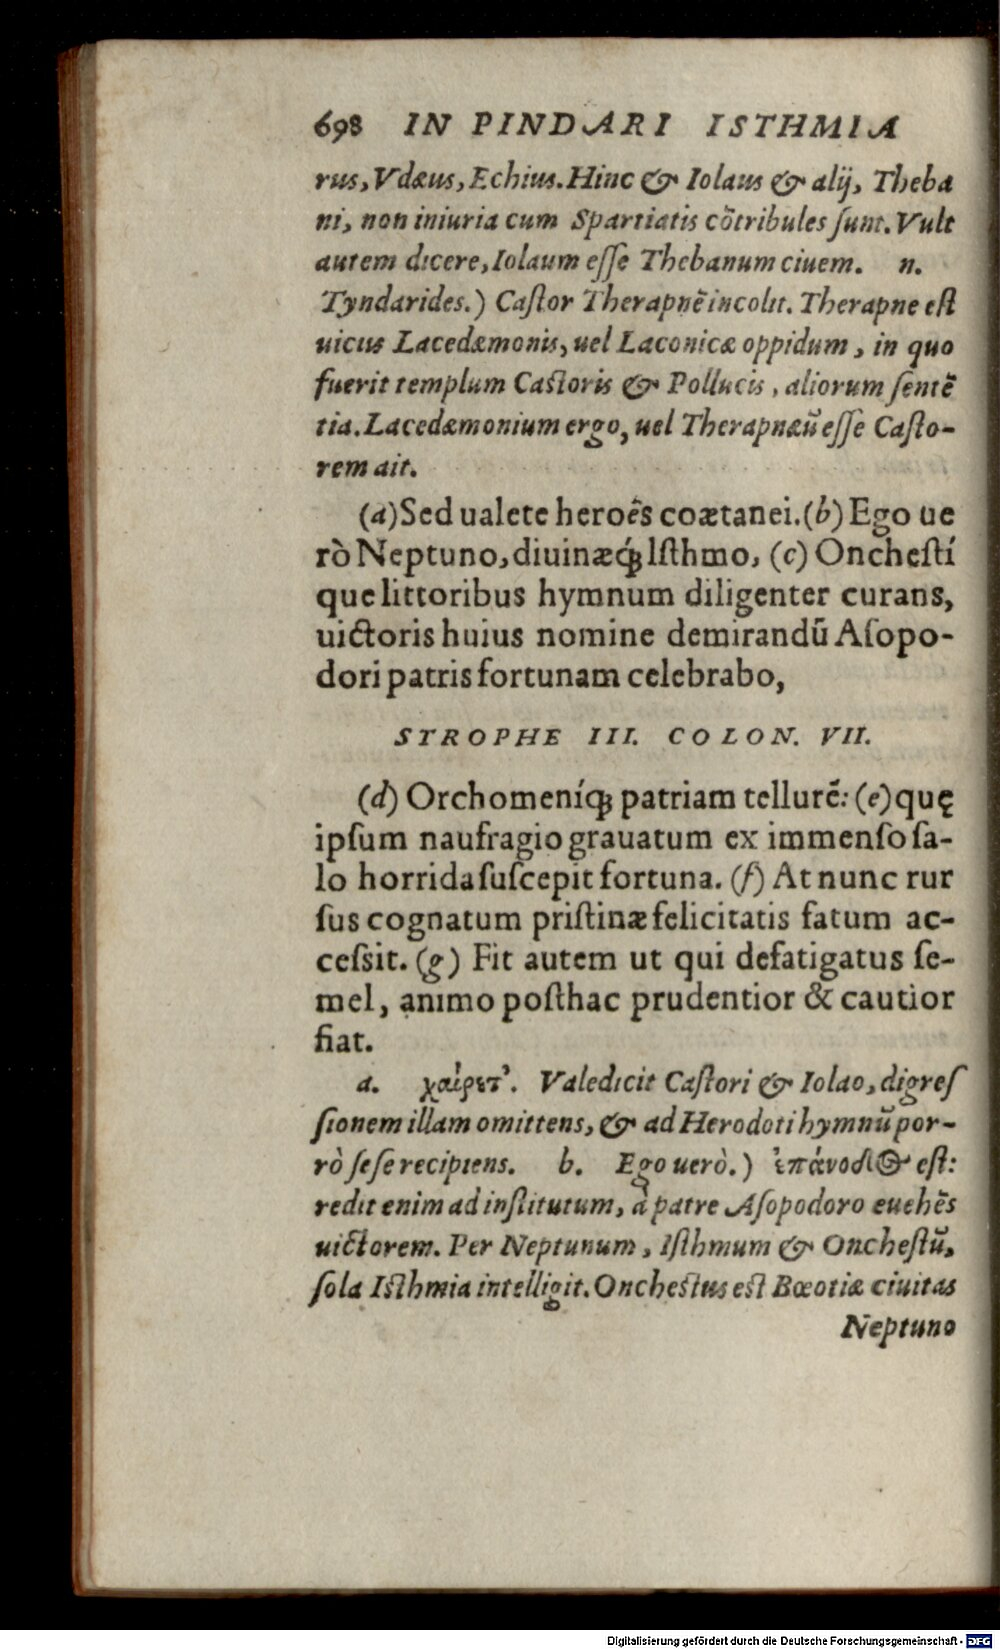 698 IN PINDARI ISTHMIA
rus, Vdæus, Echius. Hinc & Iolaus & alij, Theba
ni, non iniuria cum Spartiatis cõtribules ſunt. Vult
autem dicere, Iolaum eſſe Thebanum ciuem. n.
Tyndarides.) Caſtor Therapnẽ incolit. Therapne eſt
uicus Lacedæmonis, uel Laconicæ oppidum, in quo
fuerit templum Caſtoris & Pollucis, aliorum ſentẽ
tia. Lacedæmonium ergo, uel Therapnæũ eſſe Caſto-
rem ait.
(a) Sed ualete heroẽs coætanei. (b) Ego ue
rò Neptuno, diuinæq́; Iſthmo, (c) Oncheſtí
que littoribus hymnum diligenter curans,
uictoris huius nomine demirandũ Aſopo-
dori patris fortunam celebrabo,
STROPHE III. COLON. VII.
(d) Orchomeníq; patriam tellurẽ: (e) quę
ipſum naufragio grauatum ex immenſo ſa-
lo horrida ſuſcepit fortuna. (f) At nunc rur
ſus cognatum priſtinæ felicitatis fatum ac-
ceſsit. (g) Fit autem ut qui defatigatus ſe-
mel, animo poſthac prudentior & cautior
fiat.
a. χαίρετ’. Valedicit Caſtori & Iolao, digreſ
ſionem illam omittens, & ad Herodoti hymnũ por-
rò ſeſe recipiens. b. Ego uerò.) ἐπάνοδος eſt:
redit enim ad inſtitutum, à patre Aſopodoro euehẽs
uictorem. Per Neptunum, Iſthmum & Oncheſtũ,
ſola Iſthmia intelligit. Oncheſtus eſt Bœotiæ ciuitas
Neptuno
Digitalisierung gefördert durch die Deutsche Forschungsgemeinschaft - DFG